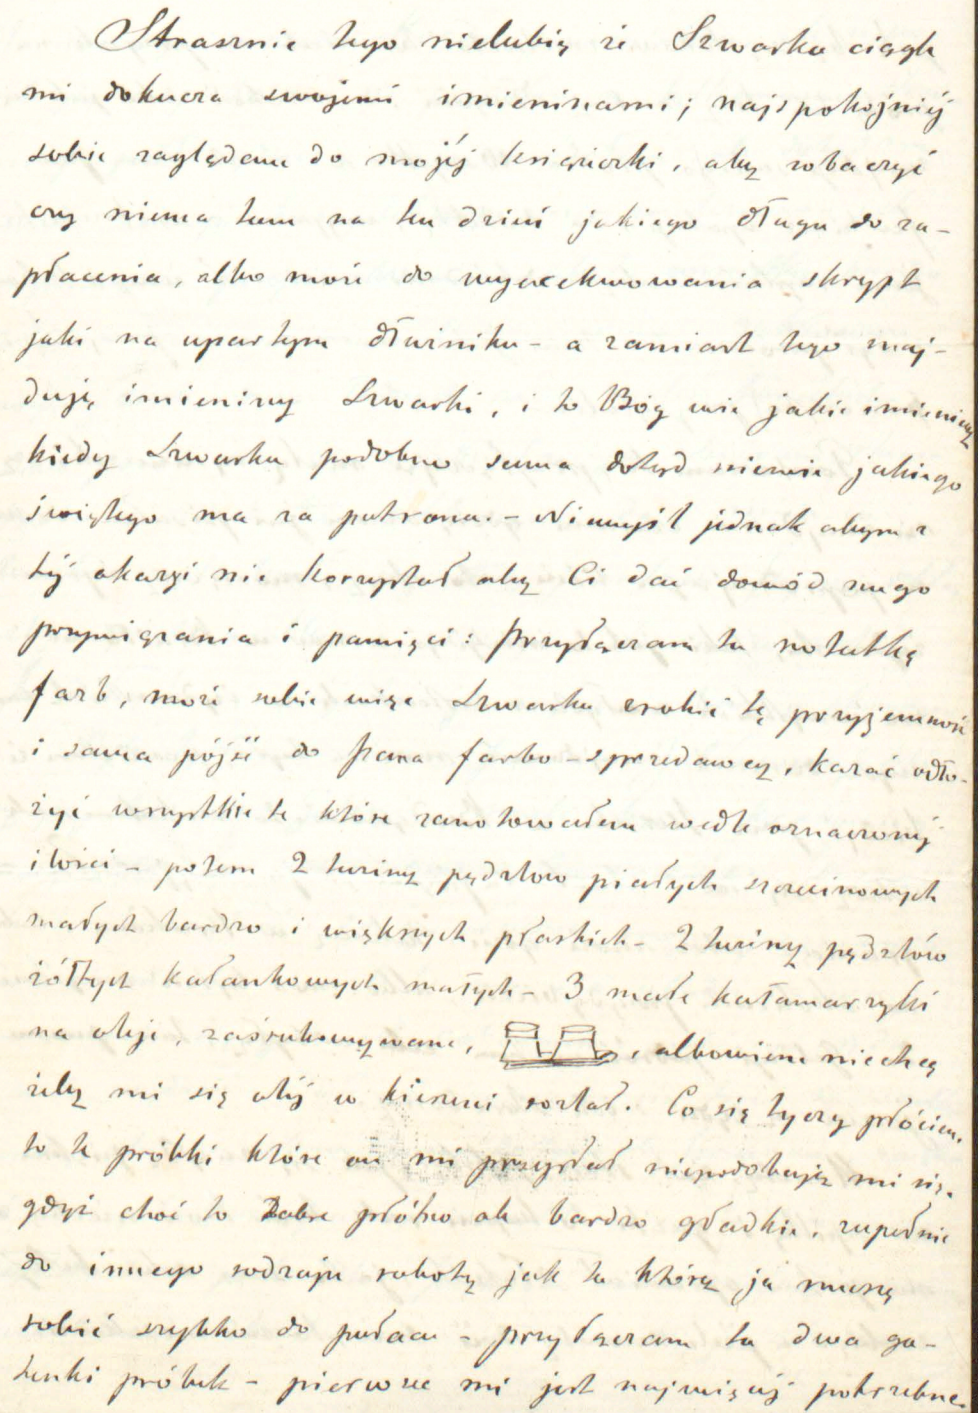 Strasznie tego nielubię że Szwarka ciągle
mi dokucza swojemi imieninami; najspokojniéj
sobie zaglądam do mojéj książeczki, aby zobaczyć
czy niema tam na ten dzień jakiego długu do za-
płacenia, albo może do wyexekwowania skrypt
jaki na upartym dłużniku - a zamiast tego znaj-
duję imieniny Szwarki, i to Bóg wie jakie imieniny
kiedy Szwarka podobno sama dotąd niewie jakiego
świętego ma za patrona. - Niemyśl jednak abym z
téj okazyi nie korzystał aby Ci dać dowód mego
przywiązania i pamięci: przyłączam tu notatkę
farb, może sobie więc Szwarka zrobić tę przyjemność
i sama pójść do Pana farbo-sprzedawcy, kazać odło-
żyć wszystkie te które zanotowałem wedle oznaczonéj
ilości - potem 2 tuziny pędzlow białych szczecinowych
małych bardzo i większych płaskich - 2 tuziny pędzlów
żółtych kałankowych małych - 3 małe kałamarzyki
na oleje, zaśrubowywane, , albowiem niechcę
żeby mi się oléj w kieszeni rozlał. Co się tyczy płócien.
to te próbki które on mi przysłał niepodobają mi się,
gdyż choć to Dobre płótno ale bardzo gładkie, zupełnie
do innego rodzaju roboty jak ta którą ja muszę
robić szybko do pałacu - przyłączam tu dwa ga-
tunki próbek - pierwsze mi jest najwięcéj potrzebne.